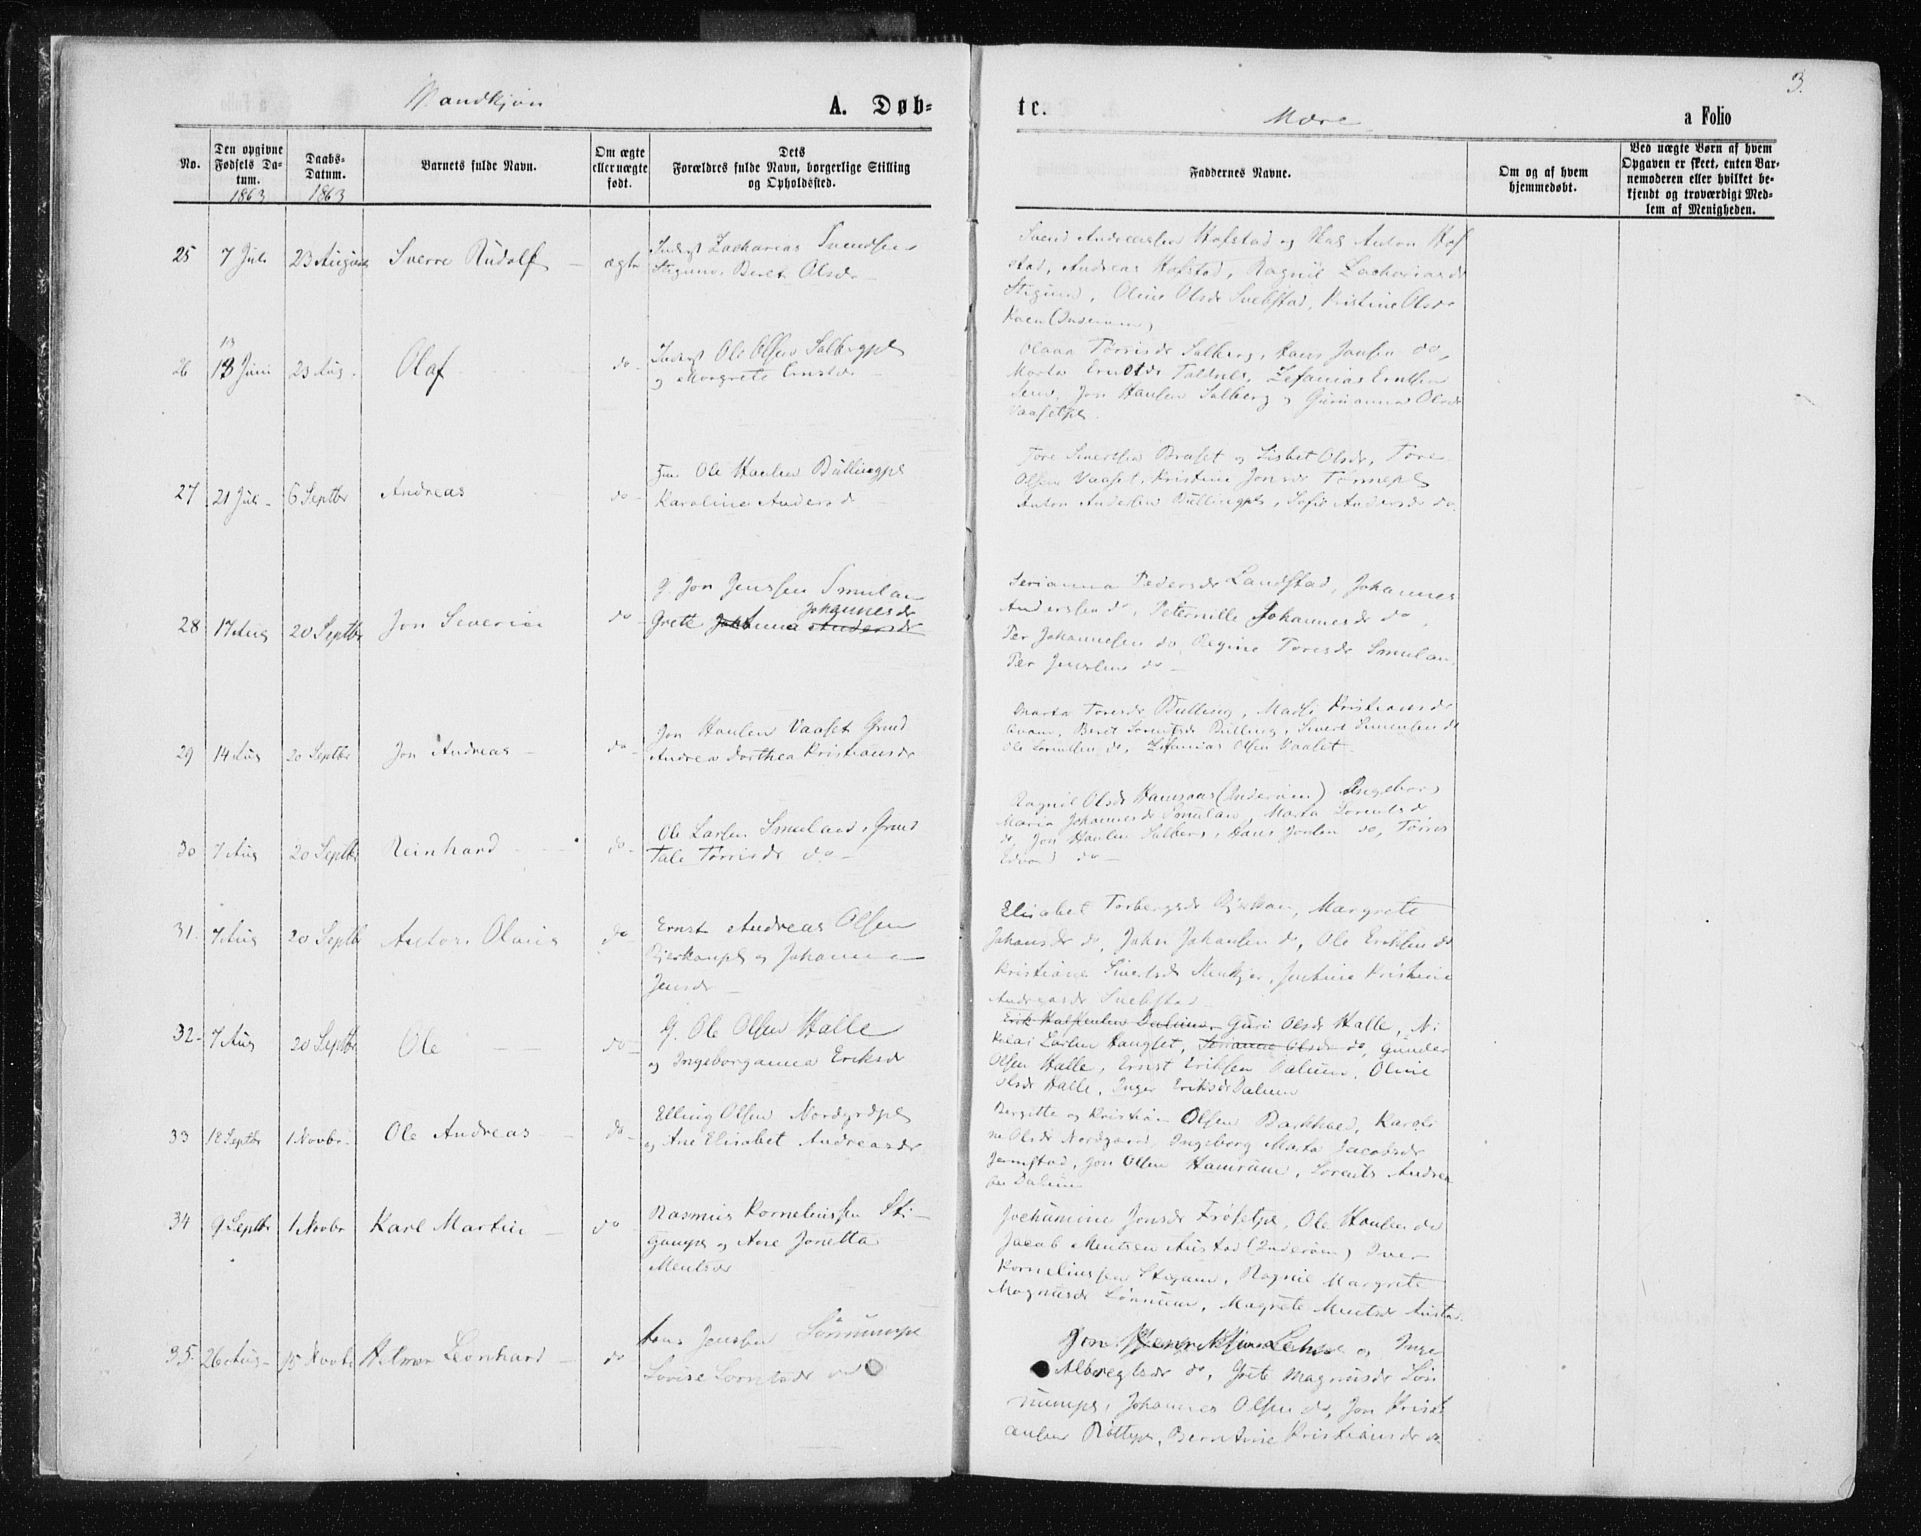 3.
Mandkjøn
A. Døb-
tc.
Mære
a Folio
No.
Den opgivne Fødsels Da-
tum.
1863
Daabs-
Datum.
1863
Barnets fulde Navn.
Om ægte
eller uægte
født.
Dets
Forældres fulde Navn, borgerlige Stilling
og Opholdssted.
Faddernes Navne.
Om og af hvem
hjemmedøbt.
Ved uægte Børn af hvem
Opgaven er skeet, enten Bar-
nemoderen eller hvilket be-
kjendt og troværdigt Med-
lem af Menigheden.
25 7 Juli 23 August Sverre Rudolf ægte Inderst Zacharias Svendsen
Stigum, Beret Olsdr
Svend Andreassen Hofstad og Anton Hof
stad, Andreas Hofstad, Ragnil Zachariasdr
Stigum, Oline Olsdr Snebstad, Kristine Olsdr
(Inderøen)
26 13 Juni 23 Aug. Olaf do Inderst Ole Olsen Salbergpl
og Margrete Ernstdr
Olava Torrisdr Salberg, Hans Jonsen do,
Marta Ernstdr Zefanias Erntsen
Jon Hansen Salberg og Gurianna Olsdr
Vaasetpl.
27 21 Juli 6 Septbr Andreas do Ole Hansen Büllingpl
Karoline Andersdr
Tore Sivertsen Braset og Lisbet Olsdr, Tore
Olsen Vaaset, Kristine Jonsdr
Anton Andersen Büllingpl, Sofie Andersdr do.
28 17 Aug 20 Septbr Jon Severin do G. Jon Jenssen Smulan
Grete Johannesdr
Serianna Pedersdr Landstad, Johannes
Anderssen do, Peternille Johannesdr do,
Per Johannesen do, Regine Toresdr Smulan,
Per Jenssen do
29 14 Aug 20 Septbr Jon Andreas do Jon Hansen Vaaset Grund
Andrea Dorthea Kristiansdr
Marta Toresdr Bulling, Kristiansdr
Beret Lorentsdr Bulling, Sivert Simensen do
Ole Lorentsen do, Zefanias Olsen Vaaset
30 7 Aug 20 Septbr Reinhard do Ole Larsen Smuland, Grund
Tale Torrisdr do
Ragnil Olsdr (Inderøen) Ingeborg
Maria Johannesdr Smulan, Marta Lorentsdr
do, Jon Hansen Salberg, Hans Jonsen do, Torris
do
31. 7 Aug 20 Septbr Anton Olaus do Ernst Andreas Olsen
Bjerkanpl og Johanna
Jensdr
Elisabet Torbergsdr Bjerkan, Margrete
Johansdr do, John Johansen do, Ole Eriksen do
Kristiane Sivertsdr Jentine Kristine
Andreasdr Snebstad
32 7 Aug 20 Septbr Ole do G. Ole Olsen Halle
og Ingeborganna Eriksdr
Erik Halstensen Dalum, Guri Olsdr Halle, Ni
kolai Larsen Haugset, Serianna Olsdr do, Gunder
Olsen Halle, Ernst Eriksen Dalum, Oline
Olsdr Halle, Inger Eriksdr Dalum
33 18 Septbr 1 Novbr Ole Andreas do Elling Olsen Nordgrdpl
og Ane Elisabet Andreasdr
Bergitte og Kristian Olsen Barkhald, Karoli
ne Olsdr Nordgaard, Ingeborg Marta Jacobsdr
Jermstad, Jon Olsen Hamrum, Lorents Andrea
sen Dalum
34 9 Septbr 1 Novbr Karl Martin do Rasmus Kornelinssen Sti-
gumpl og Ane Jonetta
Mentsdr
Jochumine Jonsdr Frøsetpl, Ole Hansen do
Jacob Mentsen Austad (Inderøen) Iver
Kornelinssen Stigum, Ragnil Margrete
Magnusdr Lønnum, Magrete Mentsdr Austad
35 26 Aug 15 Novbr Helmer Leonhard do Hans Jenssen Lønnumpl
Lovise Lorntsdr
Jon og Inge
Albregtsdr do, Grete Magnusdr Løn
numpl, Johannes Olsen do, Jon Kristi
ansen Røttepl, Berntine Kristiansdr do